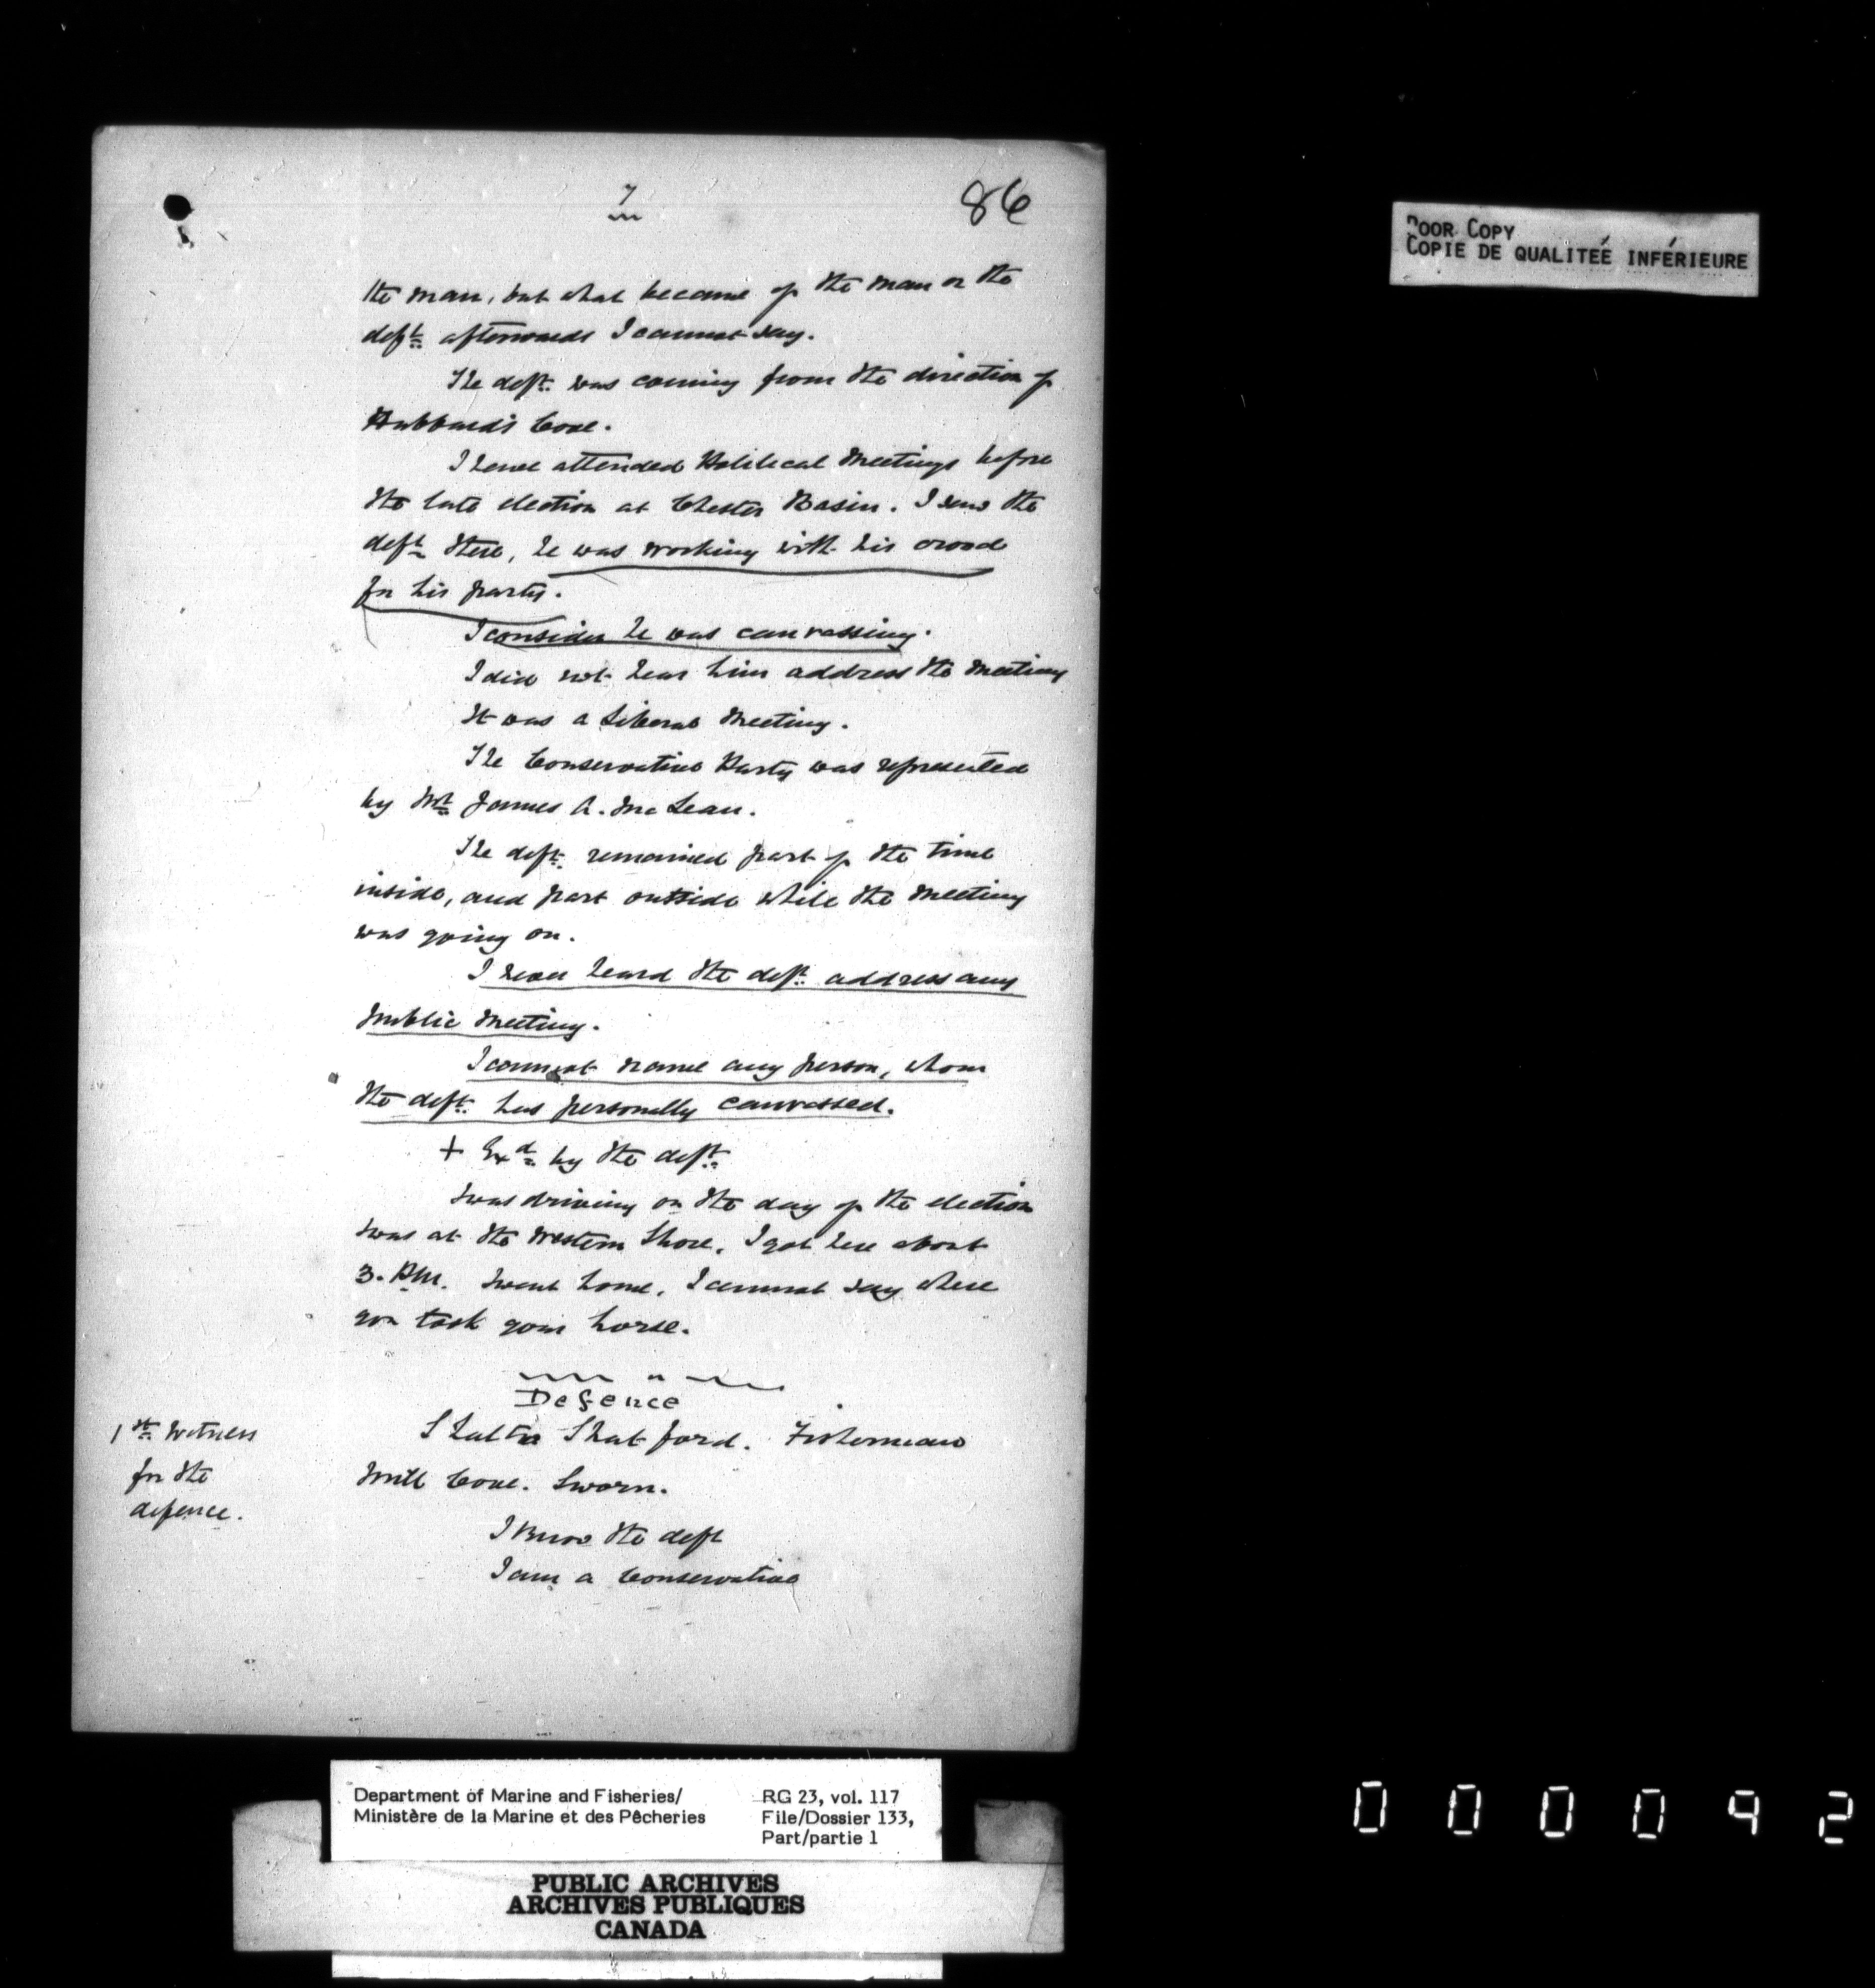 7
86
the man, but what became of the man or the
deft. afterwards I cannot say.
The deft. was coming from the direction of
Hubbard's Cove.
I have attended Political Meetings before
the late election at Chester Basin. I saw the
deft. there, he was working with his crowd
for his party.
I consider he was canvassing.
I did not hear him address the meeting
It was a Liberal Meeting.
The Conservative Party was represented
by Mr. James A. McLean.
The deft. remained part of the time
inside, and part outside while the meeting
was going on.
I never heard the deft. address any
public Meeting.
I cannot name any person, whom
the deft. has personally canvassed.
+ Exd. by the deft.
I was driving on the day of the election
I was at the Western Shore. I got here about
3. P.M. I went home. I cannot say where
you took your horse.
Defence
1st. Witness
for the
defence.
Shatford. Fisherman
Mill Cove. Sworn.
I Know the deft
I am a Conservative
POOR COPY
COPIE DE QUALITEÉ INFÉRIEURE
Department of Marine and Fisheries/
Ministère de la Marine et des Pêcheries
RG 23, vol. 117
File/Dossier 133,
Part/partie 1
PUBLIC ARCHIVES
ARCHIVES PUBLIQUES
CANADA
000092